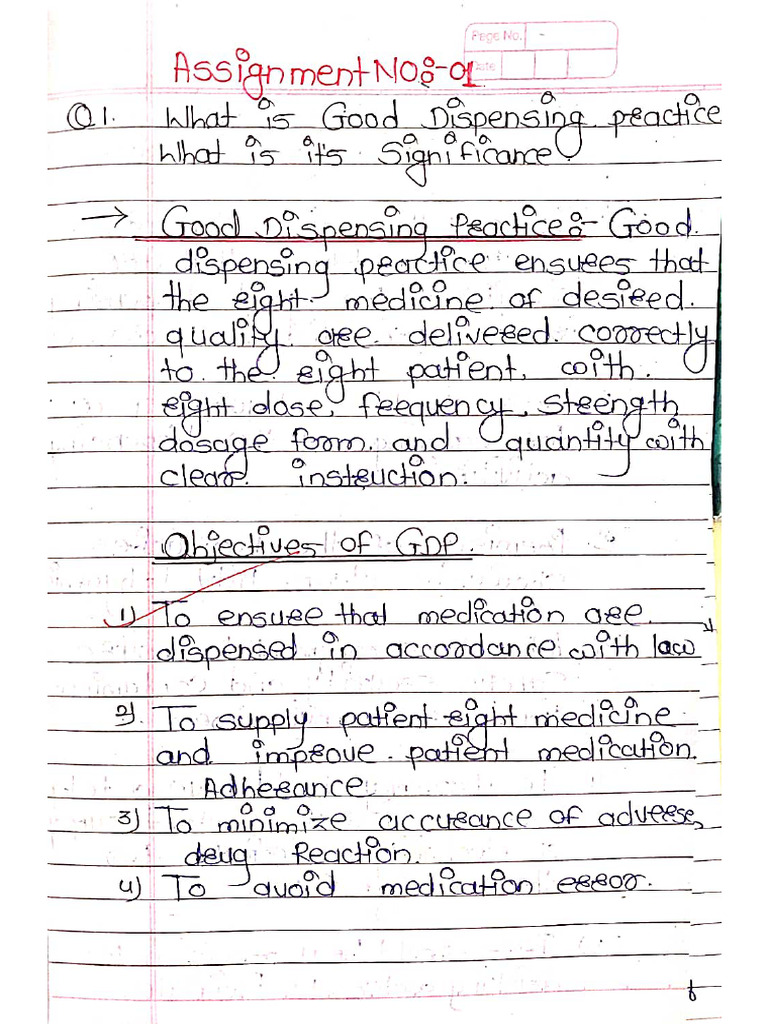 Page No. -
Date
Assignment NO:-01
Q1. What is Good Dispensing practice
What is it's Significance
→ Good Dispensing Practice:- Good
dispensing practice ensures that
the right medicine of desired.
quality are delivered correctly
to the right patient, with.
right dose, freequency, strength
dosage form and quantity with
clear instruction.
Objectives of GDP.
1) To ensure that medication are
dispensed in accordance with law
2) To supply patient right medicine
and improve patient medication.
Adherance
3) To minimize accurance of adverse,
drug Reaction.
4) To avoid medication error.